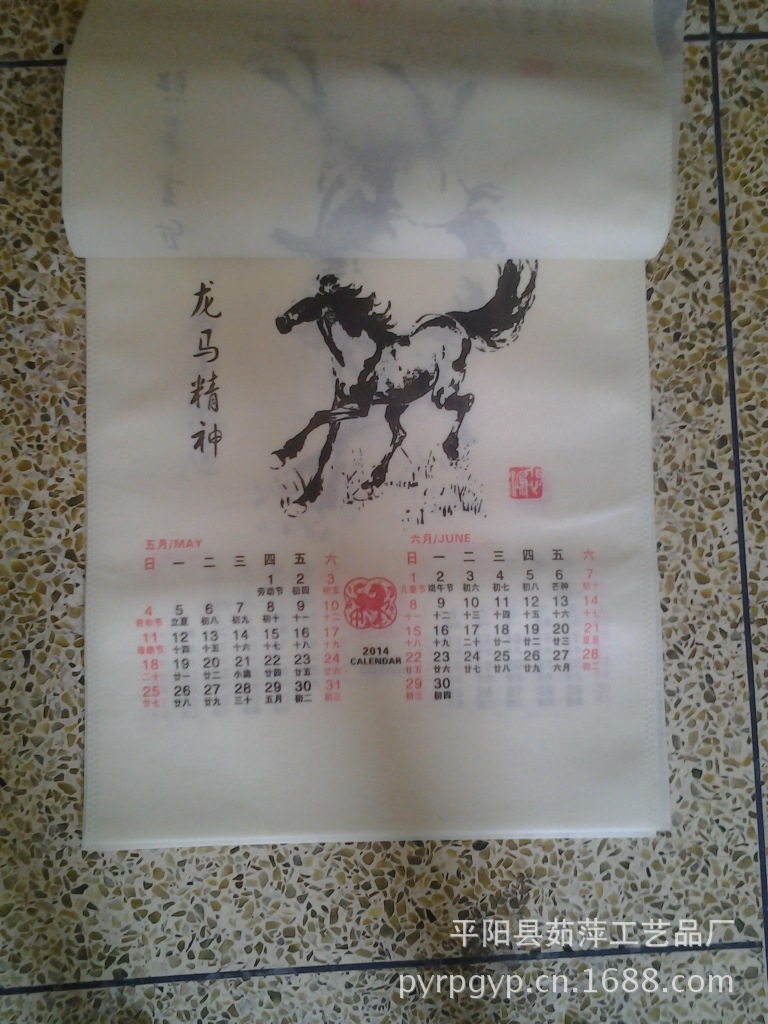 龙马精神
五月/MAY
日 一 二 三 四 五 六
1 2 3
劳动节 初四 初五
4 5 6 7 8 9 10
青年节 立夏 初八 初九 初十 十一 十二
11 12 13 14 15 16 17
母亲节 十四 十五 十六 十七 十八 十九
18 19 20 21 22 23 24
二十 廿一 廿二 小满 廿四 廿五 廿六
25 26 27 28 29 30 31
廿七 廿八 廿九 三十 五月 初二 初三
2014
CALENDAR
六月/JUNE
日 一 二 三 四 五 六
1 2 3 4 5 6 7
儿童节 端午节 初六 初七 初八 芒种 初十
8 9 10 11 12 13 14
十一 十二 十三 十四 十五 十六 十七
15 16 17 18 19 20 21
十八 十九 二十 廿一 廿二 廿三 夏至
22 23 24 25 26 27 28
廿五 廿六 廿七 廿八 廿九 六月 初二
29 30
初三 初四
平阳县茹萍工艺品厂
pyrpgyp.cn.1688.com